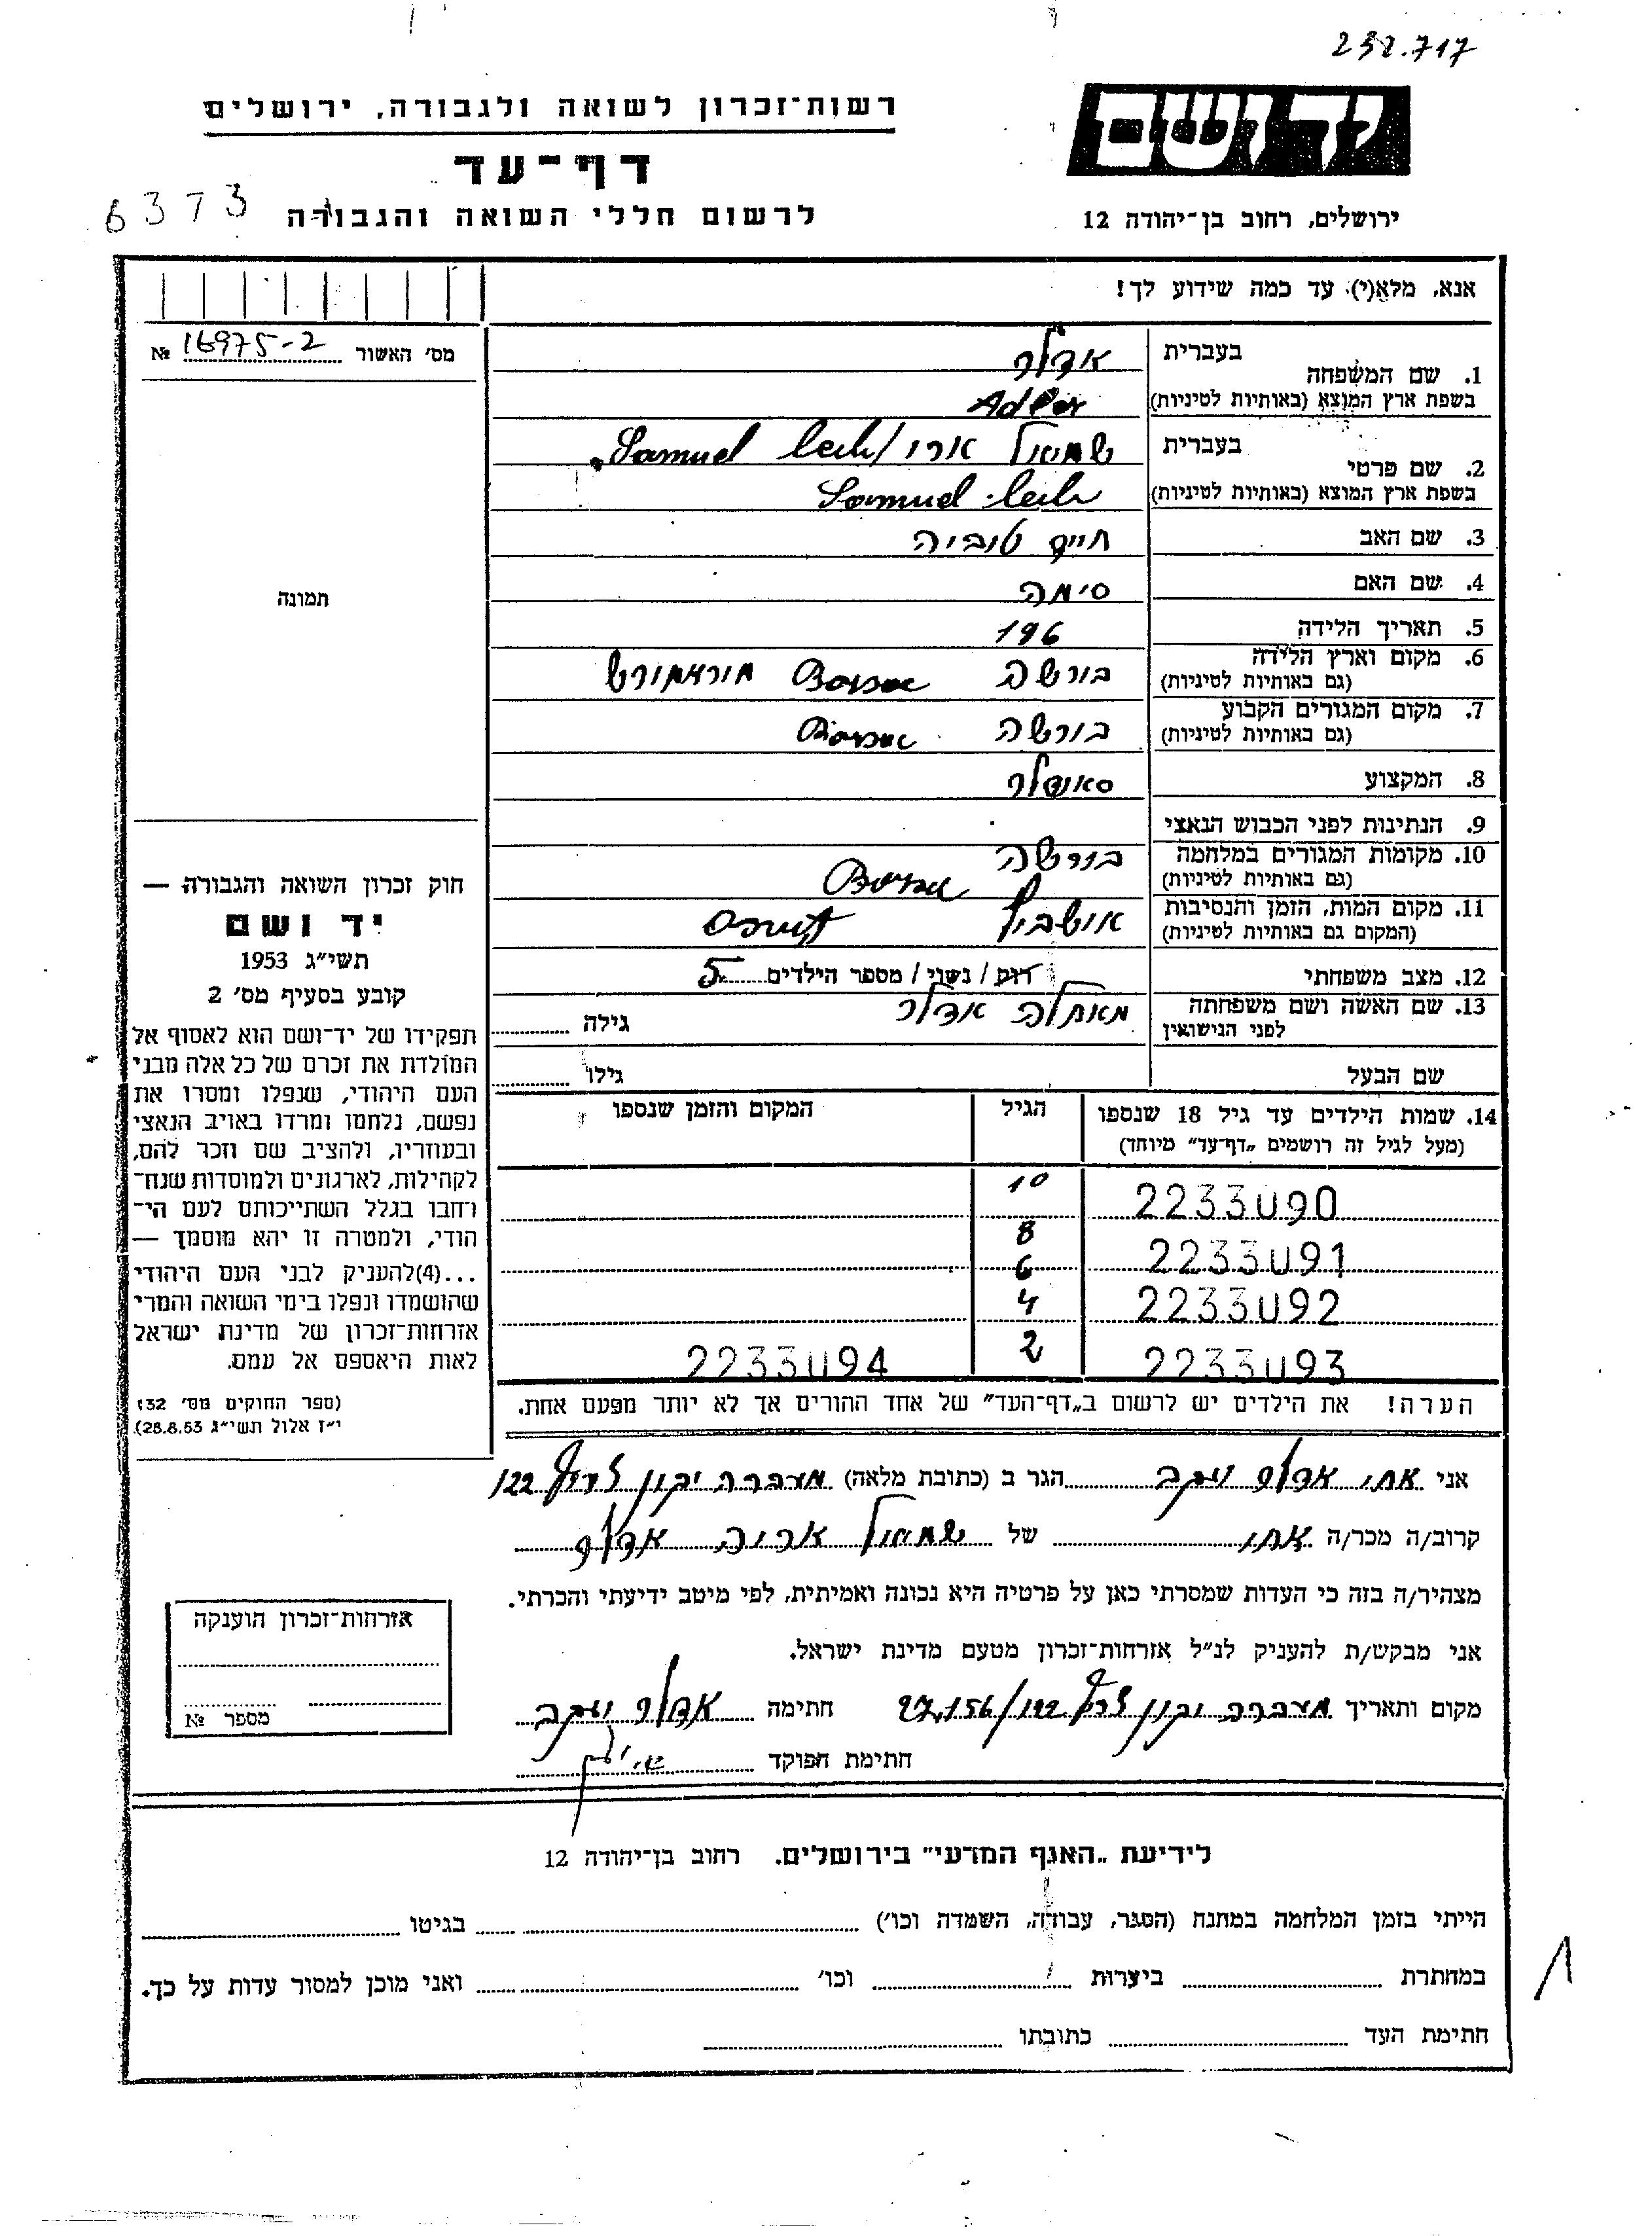 232.717
רשות־זכרון לשואה ולגבורה, ירושלים
יד ושם
דף־עד
6373
לרשום חללי השואה והגבורה
ירושלים, רחוב בן־יהודה 12
אנא, מלא(י) עד כמה שידוע לך!
מס׳ האשור 16975-2 №
1. שם המשפחה
בעברית אדלר
בשפת ארץ המוצא (באותיות לטיניות) Adler
2. שם פרטי
בעברית שמואל ארי/ Samuel Leib
בשפת ארץ המוצא (באותיות לטיניות) Samuel Leib
3. שם האב חיים טוביה
4. שם האם סימה
תמונה
5. תאריך הלידה 196
6. מקום וארץ הלידה
(גם באותיות לטיניות) בורשה Borsa
7. מקום המגורים הקבוע
(גם באותיות לטיניות) בורשה Borsa
8. המקצוע סאנדלר
9. הנתינות לפני הכבוש הנאצי
10. מקומות המגורים במלחמה
(גם באותיות לטיניות) בורשה Borsa
11. מקום המות, הזמן והנסיבות
(המקום גם באותיות לטיניות) אושביץ
12. מצב משפחתי רוק / נשוי / מספר הילדים 5
13. שם האשה ושם משפחתה
לפני הנישואין אדלר גילה
שם הבעל גילו
14. שמות הילדים עד גיל 18 שנספו הגיל המקום והזמן שנספו
(מעל לגיל זה רושמים „דף־עד״ מיוחד)
2233090 10
8
2233091 6
2233092 4
2233093 2 2233094
הערה! את הילדים יש לרשום ב„דף־העד״ של אחד ההורים אך לא יותר מפעם אחת.
חוק זכרון השואה והגבורה —
יד ושם
תשי״ג 1953
קובע בסעיף מס׳ 2
תפקידו של יד־ושם הוא לאסוף אל
המולדת את זכרם של כל אלה מבני
העם היהודי, שנפלו ומסרו את
נפשם, נלחמו ומרדו באויב הנאצי
ובעוזריו, ולהציב שם וזכר להם,
לקהילות, לארגונים ולמוסדות שנח־
רחבו בגלל השתייכותם לעם הי־
הודי, ולמטרה זו יהא מוסמך —
...(4)להעניק לבני העם היהודי
שהושמדו ונפלו בימי השואה והמרי
אזרחות־זכרון של מדינת ישראל
לאות היאספם אל עמם.
(ספר החוקים מס׳ 132
י״ז אלול תשי״ג 28.8.53)
אני אחי אדלר יעקב הגר ב (כתובת מלאה) מעברה יקון צריף 122
קרוב/ה מכר/ה אחי של שמואל אריה אדלר
מצהיר/ה בזה כי העדות שמסרתי כאן על פרטיה היא נכונה ואמיתית, לפי מיטב ידיעתי והכרתי.
אני מבקש/ת להעניק לנ״ל אזרחות־זכרון מטעם מדינת ישראל.
מקום ותאריך מעברה יקון צריף 122/ חתימה אדלר יעקב
חתימת הפוקד
אזרחות־זכרון הוענקה
מספר №
לידיעת „האגף המדעי״ בירושלים. רחוב בן־יהודה 12
הייתי בזמן המלחמה במחנה (הסגר, עבודה, השמדה וכו׳) בגיטו
במחתרת ביערות וכו׳ ואני מוכן למסור עדות על כך.
חתימת העד כתובתו